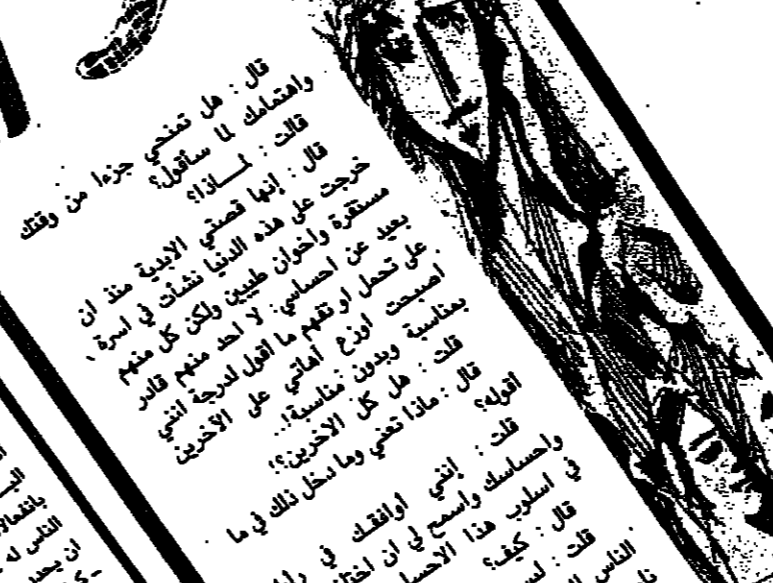 قال : هل تمنحي جزءا من وقتك
واهتمامك لما سأقول؟
قالت : لمــاذا؟
قال : إنها قصتي الابدية منذ ان
خرجت على هذه الدنيا نشأت في اسرة
مستقرة واخوان طيبين ولكن كل منهم
بعيد عن احساسي: لا احد منهم قادر
على تحمل او تفهم ما اقول لدرجة انني
اصبحت اوزع أهاتي على الآخرين
بمناسبة وبدون مناسبة!..
قلت : هل كل الاخرين؟!
قال : ماذا تعني وما دخل ذلك في ما
اقوله؟
قلت : إنني اوافقك في
واحساسك واسمح لي ان
في اسلوب هذا
قال : كيف؟
قلت :
الناس
بانفعالا
الناس له